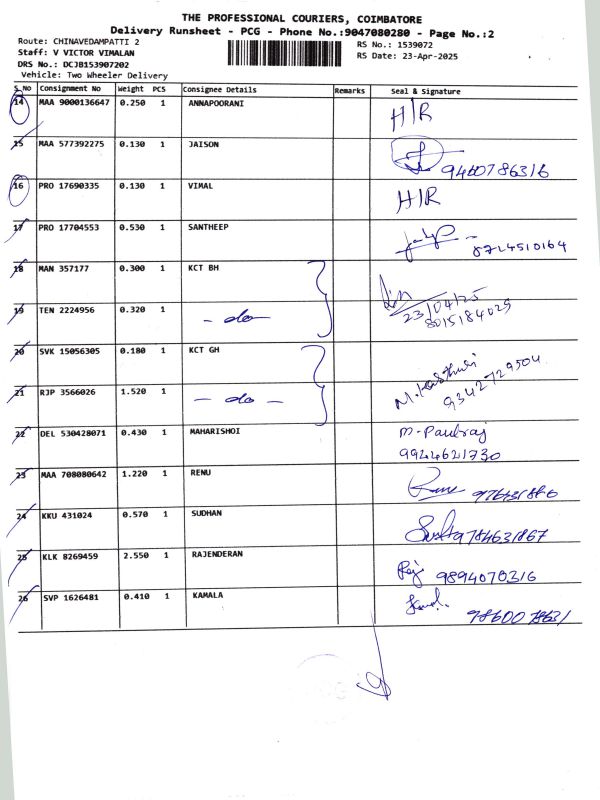 THE PROFESSIONAL COURIERS, COIMBATORE
Delivery Runsheet - PCG - Phone No.:9047080280 - Page No.:2
Route: CHINAVEDAMPATTI 2 RS No.: 1539072
Staff: V VICTOR VIMALAN RS Date: 23-Apr-2025
DRS No.: DCJB153907202
Vehicle: Two Wheeler Delivery
S.No Consignment No Weight PCS Consignee Details Remarks Seal & Signature
14 MAA 9000136647 0.250 1 ANNAPOORANI H/R
15 MAA 577392275 0.130 1 JAISON 9460786316
16 PRO 17690335 0.130 1 VIMAL H/R
17 PRO 17704553 0.530 1 SANTHEEP 8724510164
18 MAN 357177 0.300 1 KCT BH 23/04/25
19 TEN 2224956 0.320 1 - do - 8015184025
20 SVK 15056305 0.180 1 KCT GH
21 RJP 3566026 1.520 1 - do - 9342729504
22 DEL 530428071 0.430 1 MAHARISHOI M-Paulraj
9944621730
23 MAA 708080642 1.220 1 RENU
24 KKU 431024 0.570 1 SUDHAN 9784631867
25 KLK 8269459 2.550 1 RAJENDERAN Raj 9894070316
26 SVP 1626481 0.410 1 KAMALA